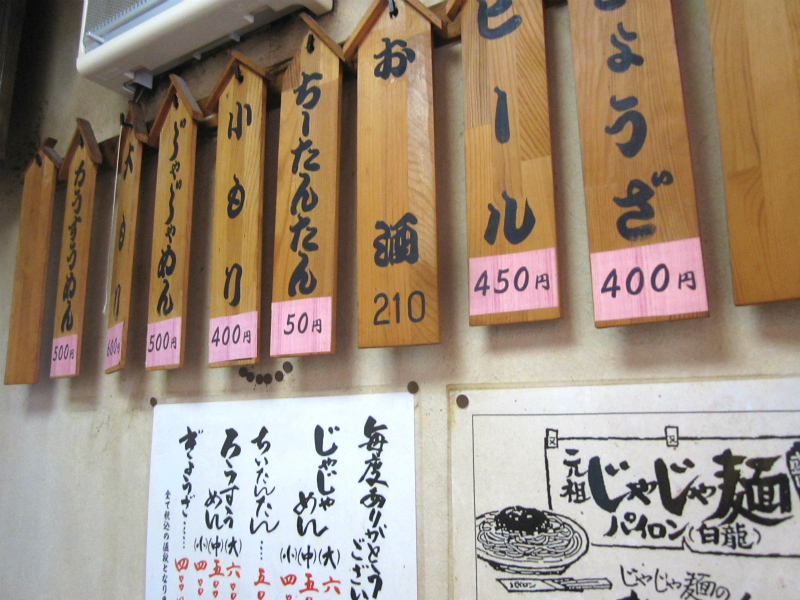 ょうざ
400円
ビール
450円
お酒
210
ちーたんたん
50円
小もり
400円
じゃじゃめん
500円
大もり
600円
ろうすうめん
500円
毎度ありがとうござい
じゃじゃめん (大) 六
(中) 五
(小) 四
ちいたんたん…… 五
ろうすうめん (大) 六〇〇
(中) 五〇〇
(小) 四〇〇
ぎょうざ…… 四〇〇
全て税込の値段となりま
元祖
じゃじゃ麺
パイロン(白龍)
じゃじゃ麺の